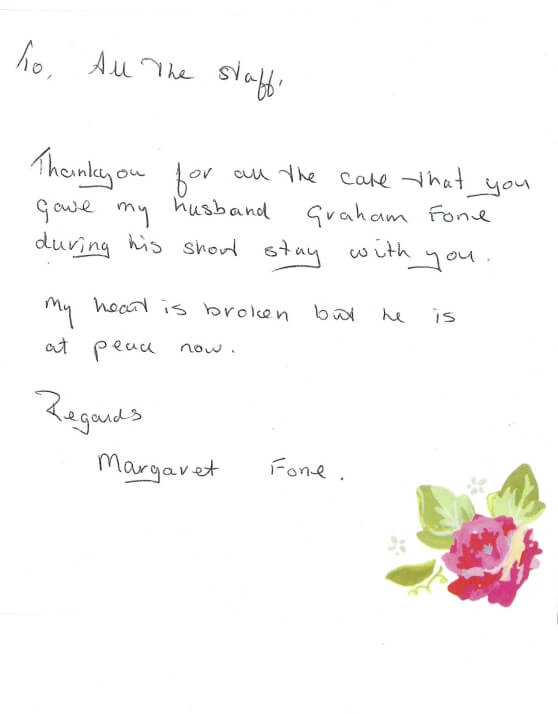 To, All The staff,
Thankyou for all the care that you
gave my husband Graham Fone
during his short stay with you.
My heart is broken but he is
at peace now.
Regards
Margaret Fone.